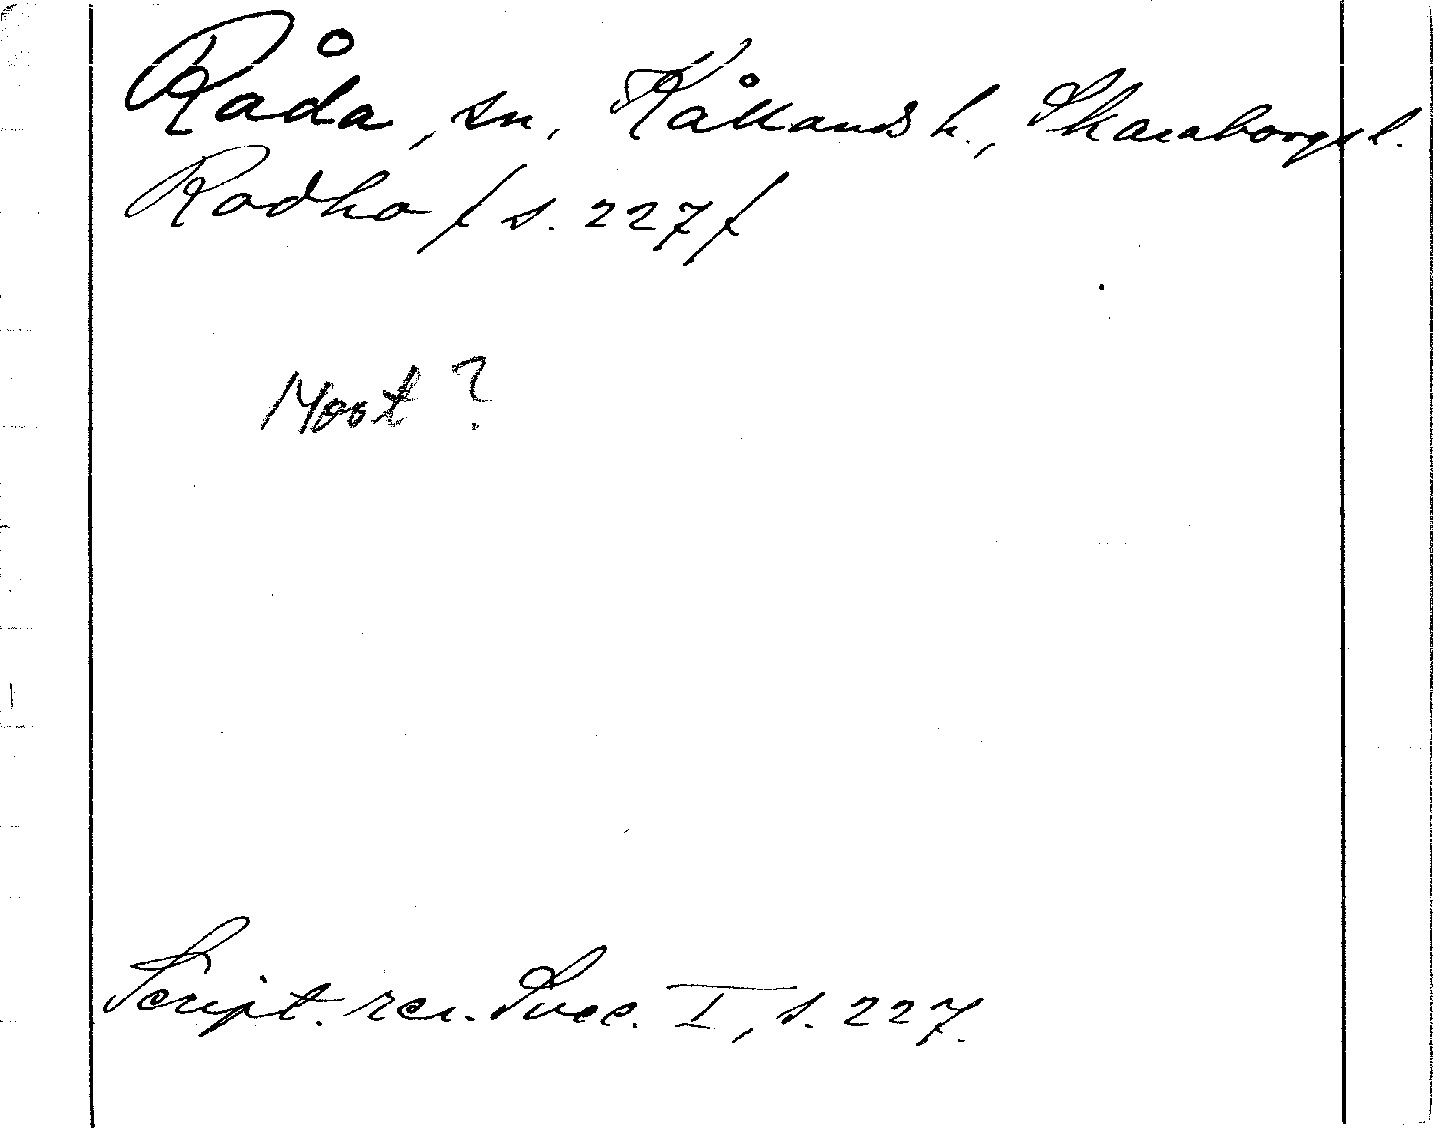 Råda, sn, Kållands h., Skaraborgs l.
Rodho / s. 227 /
Script. rer. Svec. I, s. 227.